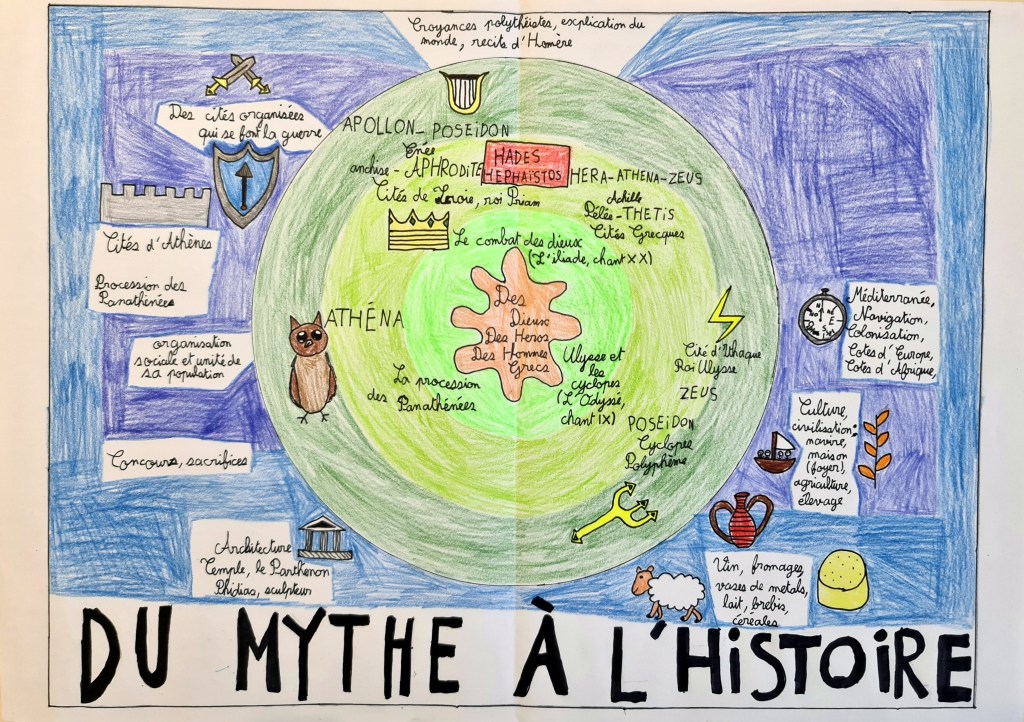 Croyances polythéistes, explication du
monde, recits d'Homère
Des cités organisées
qui se font la guerre
Cités d'Athènes
Procession des
Panathénées
organisation
sociale et unité de
sa population
Concours, sacrifices
Architecture
Temple, le Parthénon
Phidias, sculpteur
APOLLON_ POSEIDON
Enée
anchise - APHRODITE
HADES
HEPHAISTOS
HERA-ATHENA-ZEUS
Cités de Troie, roi Priam
Achille
Pélée-THETIS
Cités Grecques
Le combat des dieux
(L'iliade, chant XX)
Des
Dieux
Des Heros
Des Hommes
Grecs
ATHÉNA
La procession
des Panathénées
Ulysse et
les
cyclopes
(L'Odyssé,
chant IX)
Cité d'Ithaque
Roi Ulysse
ZEUS
POSEIDON
Cyclopee
Polyphème
N
E
S
Méditerranée,
Navigation,
Colonisation,
Cotes d'Europe,
Cotes d'Afrique,
Culture,
civilisation:
navire,
maison
(foyer),
agriculture,
élevage
Vin, fromages,
vases de metals,
lait, brebis,
céréales
DU MYTHE À L'HiSTOiRE